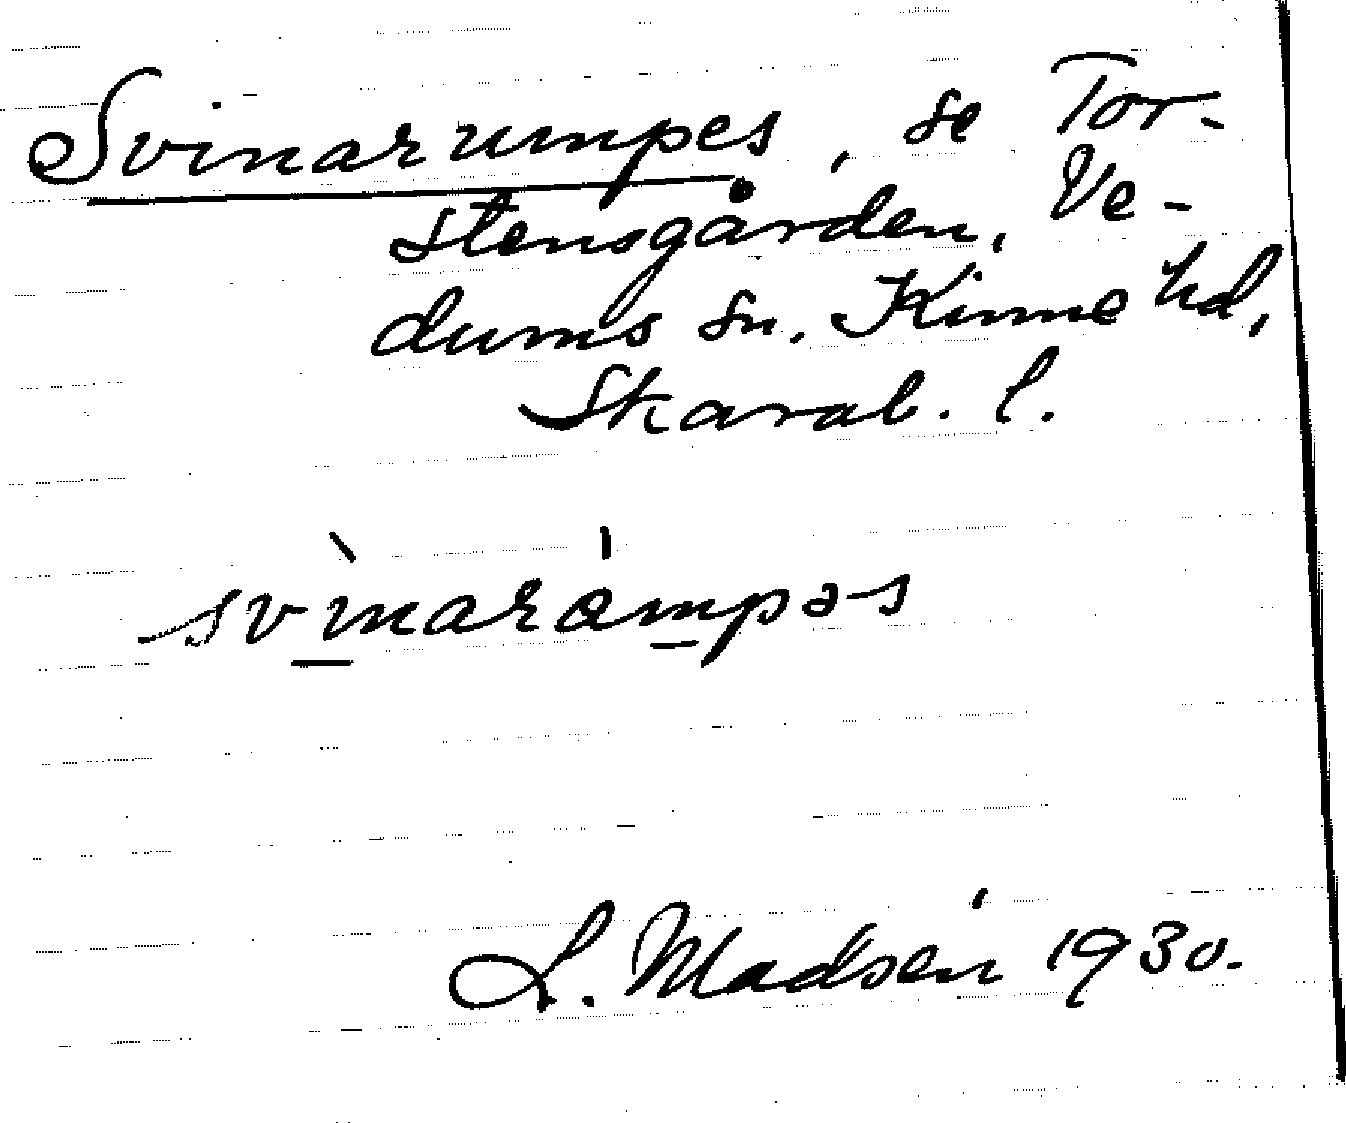 Svinarumpes, se Tor-
stensgården, Ve-
dums sn. Kinne hd,
Skarab. l.
svìnarɵ́mpəs
L. Madsén 1930.